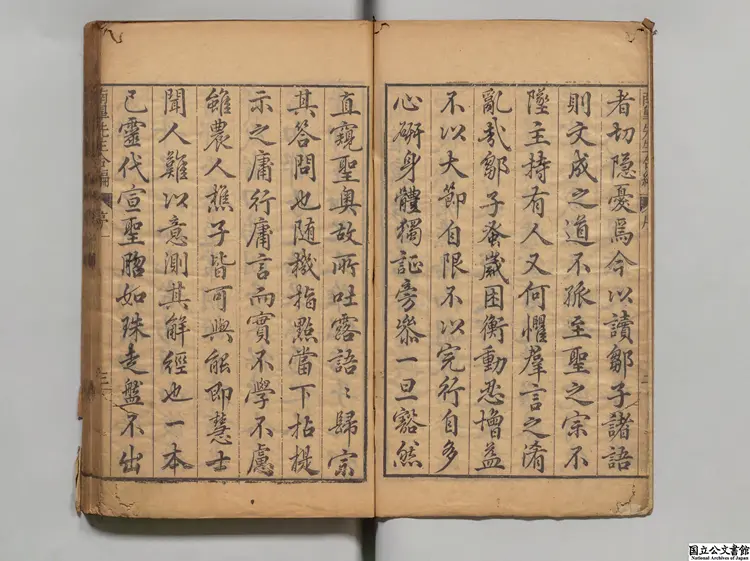 南皐先生合編 序
者切隐憂焉今以讀鄒子諸語
則文成之道不孤至聖之宗不
墜主持有人又何懼羣言之淆
亂哉鄒子蚤歲困衡動忍增益
不以大節自限不以完行自多
心硏身體獨証旁叅一旦豁然
直窺聖奥故所吐露語〻歸宗
其答問也随機指點當下拈提
示之庸行庸言而實不學不慮
雖農人樵子皆可與能即慧士
聞人難以意測其解經也一本
己靈代宣聖脗如珠走盤不出
南皐先生合編 序一 三
国立公文書館
National Archives of Japan